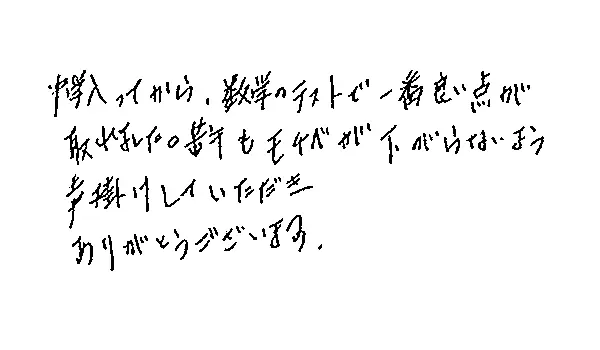 中学入ってから、数学のテストで一番良い点が
取れました。苦手もモチベが下がらないよう
声掛けしていただき
ありがとうございます。